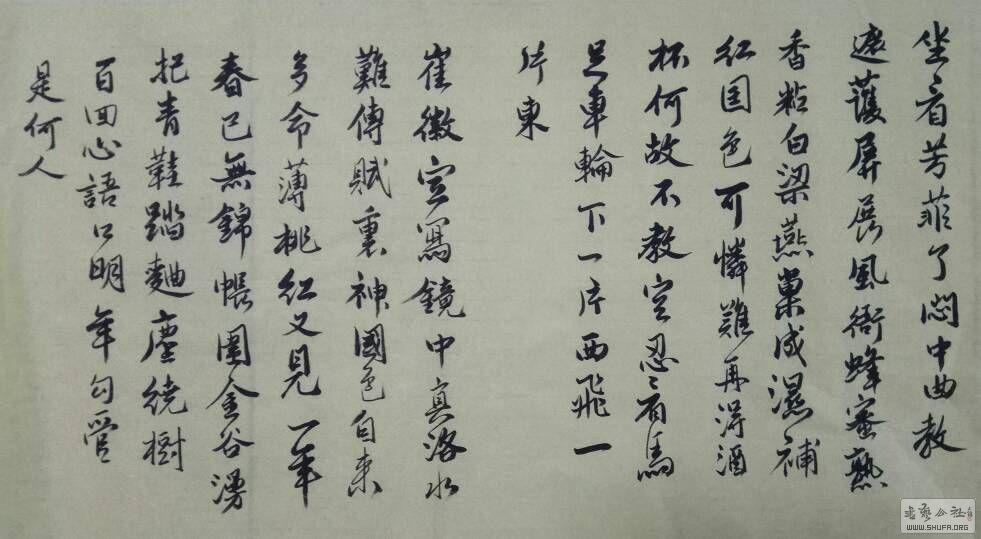 坐看芳菲了悶中由教
遮護屏展風銜蜂蜜熟
香粘白梁燕巢成濕補
紅国色可憐難再得酒
杯何故不教空忍看馬
足車輪下一片西飛一
片東
崔徽空寫鏡中真洛水
難傳賦裏神國色自来
多命薄桃紅又見一年
春已無錦帳圍金谷漫
把青鞋踏麯塵繞樹
百回心語口明年勾管
是何人
书艺公社
WWW.SHUFA.ORG